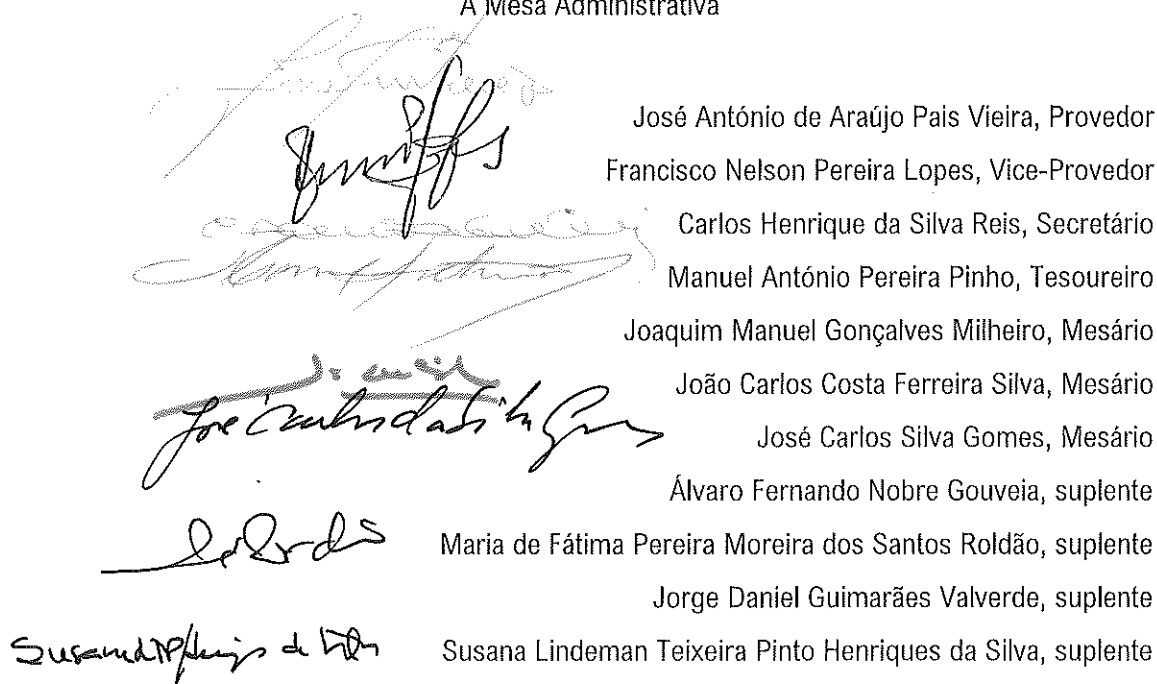 A Mesa Administrativa
José António de Araújo Pais Vieira, Provedor
Francisco Nelson Pereira Lopes, Vice-Provedor
Carlos Henrique da Silva Reis, Secretário
Manuel António Pereira Pinho, Tesoureiro
Joaquim Manuel Gonçalves Milheiro, Mesário
João Carlos Costa Ferreira Silva, Mesário
José Carlos da Silva Gomes
José Carlos Silva Gomes, Mesário
Álvaro Fernando Nobre Gouveia, suplente
Maria de Fátima Pereira Moreira dos Santos Roldão, suplente
Jorge Daniel Guimarães Valverde, suplente
Susana Lindeman Teixeira Pinto Henriques da Silva, suplente